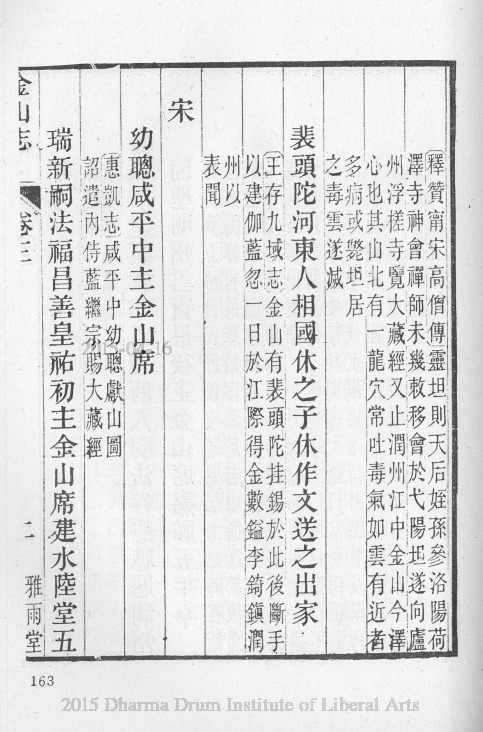 釋贊甯宋高僧傳靈坦則天后姪孫參洛陽荷
澤寺神會禪師未幾敕移會於弋陽坦遂向廬
州浮槎寺覽大藏經又止潤州江中金山今澤
心也其山北有一龍穴常吐毒氣如雲有近者
多病或斃坦居
之毒雲遂滅
裴頭陀河東人相國休之子休作文送之出家
王存九域志金山有裴頭陀挂錫於此後斷手
以建伽藍忽一日於江際得金數鎰李錡鎮潤
州以
表聞
宋
幼聰咸平中主金山席
惠凱志咸平中幼聰獻山圖
詔遣內侍藍繼宗賜大藏經
瑞新嗣法福昌善皇祐初主金山席建水陸堂五
金山志
卷三
二
雅雨堂
163
2015 Dharma Drum Institute of Liberal Arts